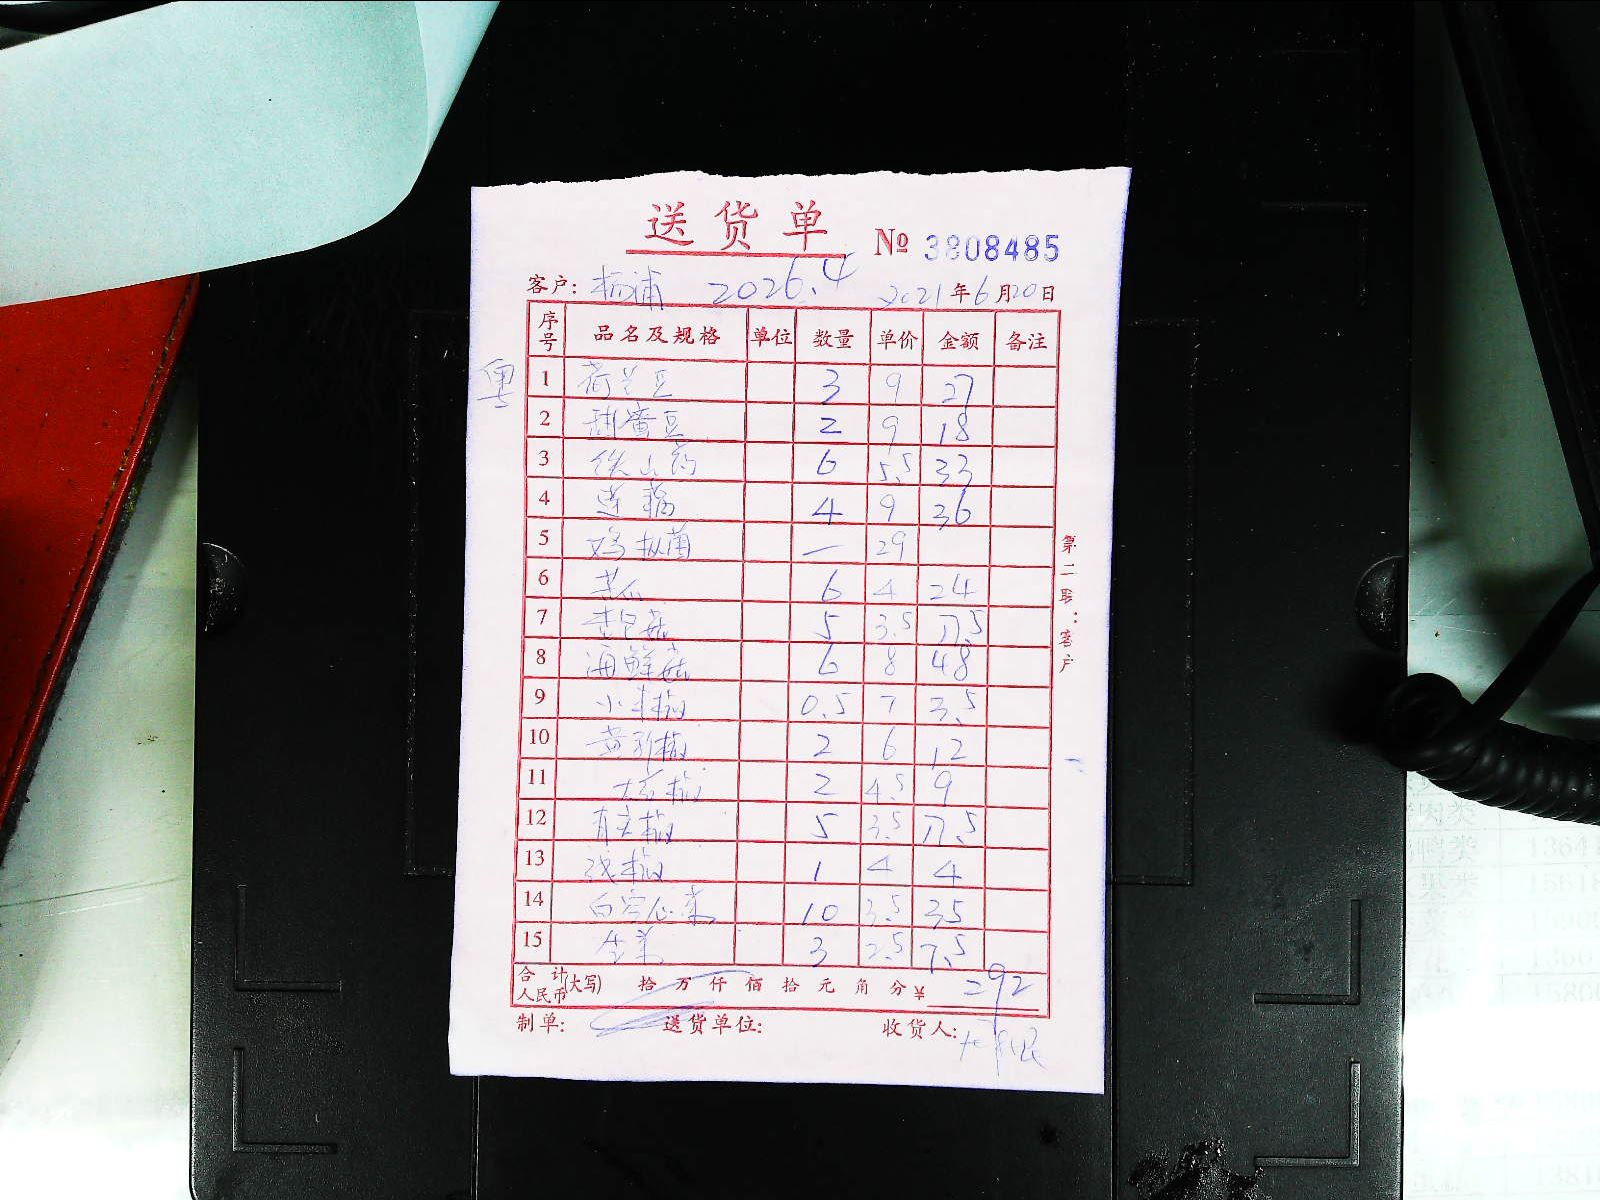 送货单
№ 3808485
客户: 杨浦 2026.4 2021年6月20日
序号 品名及规格 单位 数量 单价 金额 备注
粤
1 荷兰豆 3 9 27
2 甜蜜豆 2 9 18
3 铁山药 6 5.5 33
4 莲藕 4 9 36
5 鸡枞菌 — 29
6 苦瓜 6 4 24
7 5 3.5 17.5
8 海鲜菇 6 8 48
9 小米椒 0.5 7 3.5
10 黄彩椒 2 6 12
11 大红椒 2 4.5 9
12 青尖椒 5 3.5 17.5
13 线椒 1 4 4
14 白空心菜 10 3.5 35
15 生菜 3 2.5 7.5
合计人民币(大写) 拾 万 仟 佰 拾 元 角 分 ¥ 292
制单: 送货单位: 收货人:
第二联:客户
肉类
鸭类 13641
果类 15618
菜